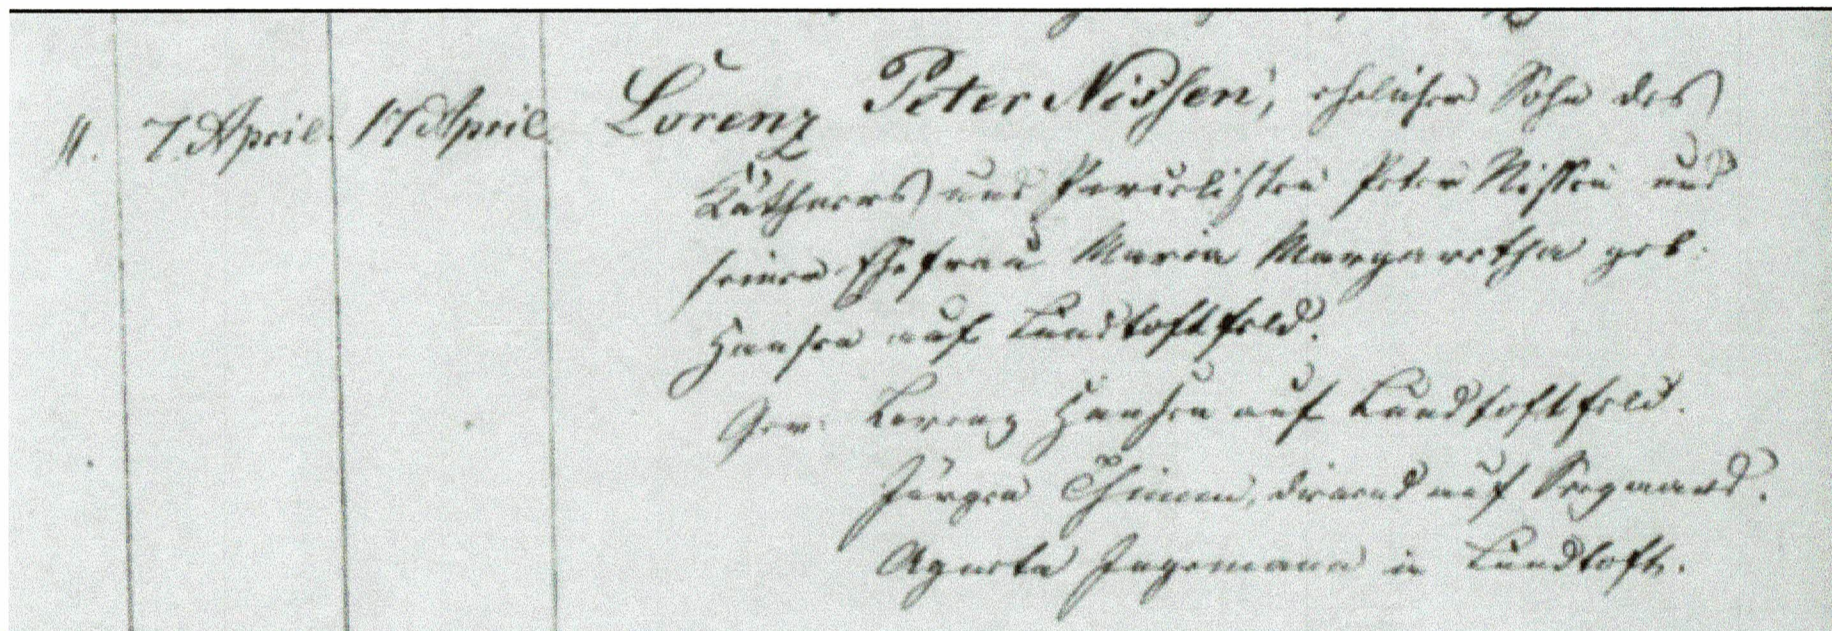 11. 7. April. 17 April. Lorenz Peter Nissen, ehelicher Sohn des
Käthners und Parcelisten Peter Nissen und
seiner Ehefrau Maria Margaretha geb.
Hansen auf Lundtoftfeld.
Gev. Lorenz Hansen auf Lundtoftfeld.
Jürgen Thimm, dienend auf Seegaard.
Agneta Ingemann in Lundtoft.